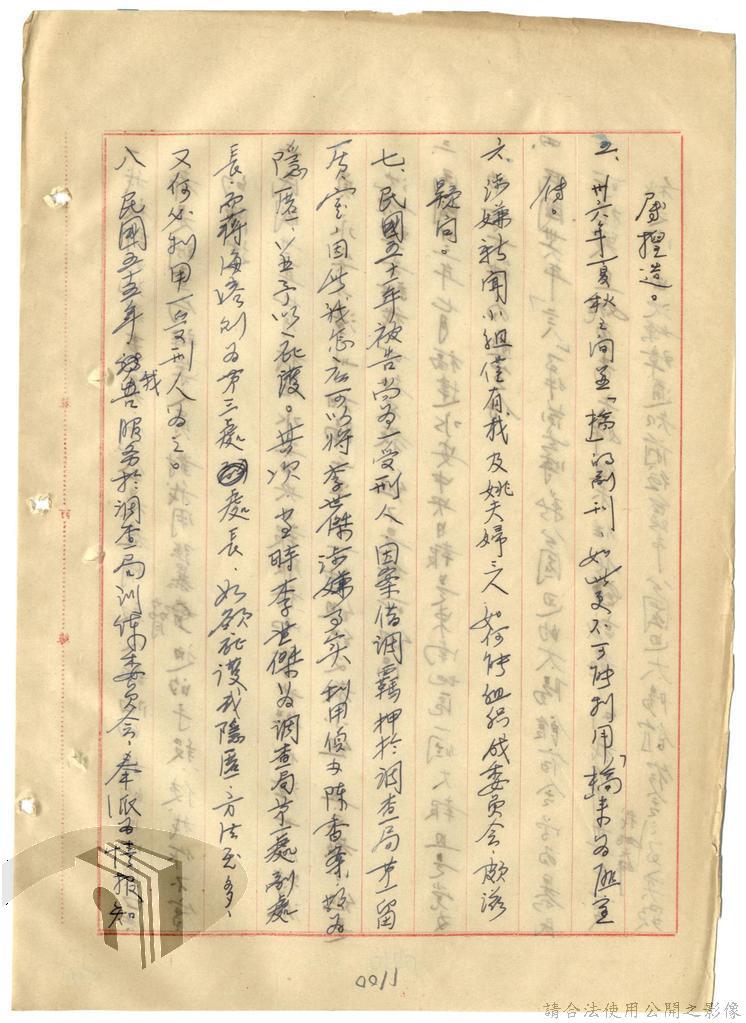 屬捏造。
五、卅六年夏秋之間並「橋」的副刊，如此更不可能利用「橋」來為匪宣
傳。
六、涉嫌新聞小組僅有我及姚夫婦三人，如何能組織成委員會，頗滋
疑問。
七、民國五十一年被告尚為一受刑人，因案借調羈押於調查局第一留
居室，因此我怎麼可以將李世傑涉嫌事實利用偵办陳香案，
隱匿，並予以庇護。其次，當時李世傑為調查局第一處副處
長，而蔣海溶則為第三處處長，如欲庇護或隱匿，方法至多，
又何必利用一受刑人為之。
八、民國五十五年，我服務於調查局訓練委員會，奉派為情報知
0011
請合法使用公開之影像